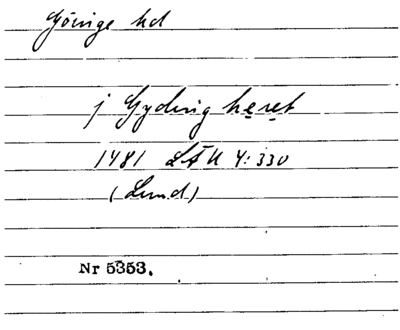 Göinge hd
j Gyding hẹrẹt
1481 LÄU 4:330
(Lund)
Nr 5353.